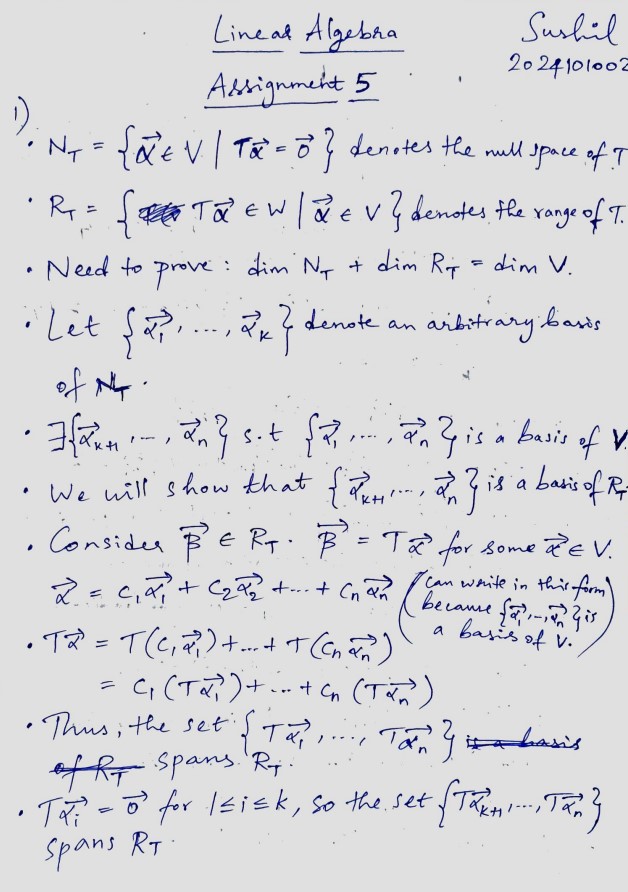 Linear Algebra
Sushil
Assignment 5
2024101002
1)
• N_T = {α⃗ ∈ V | Tα⃗ = 0⃗} denotes the null space of T
• R_T = {Tα⃗ ∈ W | α⃗ ∈ V} denotes the range of T.
• Need to prove : dim N_T + dim R_T = dim V.
• Let {α⃗₁, ..., α⃗_k} denote an arbitrary basis
of N_T.
• ∃{α⃗_{k+1}, ..., α⃗_n} s.t {α⃗₁, ..., α⃗_n} is a basis of V.
• We will show that {α⃗_{k+1}, ..., α⃗_n} is a basis of R_T
• Consider β⃗ ∈ R_T. β⃗ = Tα⃗ for some α⃗ ∈ V.
α⃗ = c₁α⃗₁ + c₂α⃗₂ + ... + c_nα⃗_n
(can write in this form
because {α⃗₁, ..., α⃗_n} is
a basis of V.)
• Tα⃗ = T(c₁α⃗₁) + ... + T(c_nα⃗_n)
= c₁(Tα⃗₁) + ... + c_n(Tα⃗_n)
• Thus, the set {Tα⃗₁, ..., Tα⃗_n} ~~is a basis~~
~~of R_T~~ spans R_T.
• Tα⃗_i = 0⃗ for 1≤i≤k, so the set {Tα⃗_{k+1}, ..., Tα⃗_n}
spans R_T.